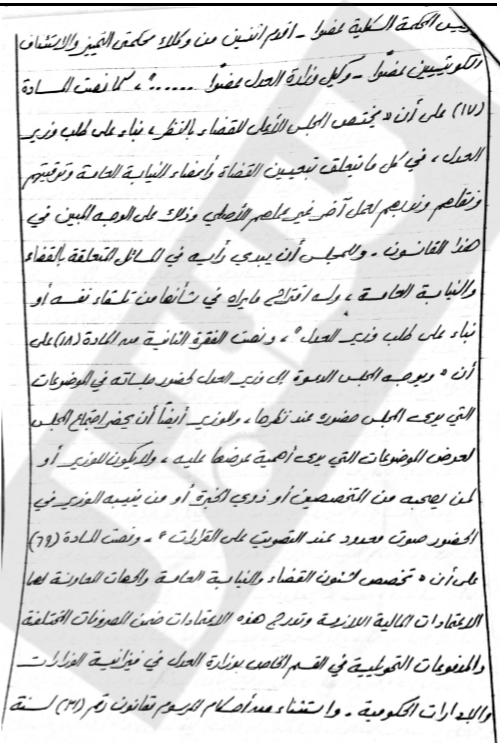 رئيس المحكمة الكلية عضوا - أقدم اثنين من وكلاء محكمتي التمييز والاستئناف
الكويتيين عضوا - وكيل وزارة العدل عضوا ...... "، كما نصت المادة
(١٧) على أن " يختص المجلس الأعلى للقضاء بالنظر، بناء على طلب وزير
العدل، في كل ما يتعلق بتعيين القضاة وأعضاء النيابة العامة وترقيتهم
ونقلهم وندبهم لعمل آخر غير عملهم الأصلي وذلك على الوجه المبين في
هذا القانون. وللمجلس أن يبدي رأيه في المسائل المتعلقة بالقضاء
والنيابة العامة، وله اقتراح ما يراه في شأنها من تلقاء نفسه أو
بناء على طلب وزير العدل "، ونصت الفقرة الثانية من المادة (١٨) على
أن " ويوجه المجلس الدعوة إلى وزير العدل لحضور جلساته في الموضوعات
التي يرى المجلس حضوره عند نظرها، وللوزير أيضاً أن يحضر اجتماع المجلس
لعرض الموضوعات التي يرى أهمية عرضها عليه، ولا يكون للوزير أو
لمن يصحبه من المتخصصين أو ذوي الخبرة أو من ينيبه الوزير في
الحضور صوت معدود عند التصويت على القرارات "، ونصت المادة (٦٩)
على أن " تخصص لشئون القضاء والنيابة العامة والجهات المعاونة لها
الاعتمادات المالية اللازمة وتدرج هذه الاعتمادات ضمن المصروفات المختلفة
والمدفوعات التحويلية في القسم الخاص بوزارة العدل في ميزانية الوزارات
والإدارات الحكومية. واستثناء من أحكام المرسوم بقانون رقم (٣١) لسنة